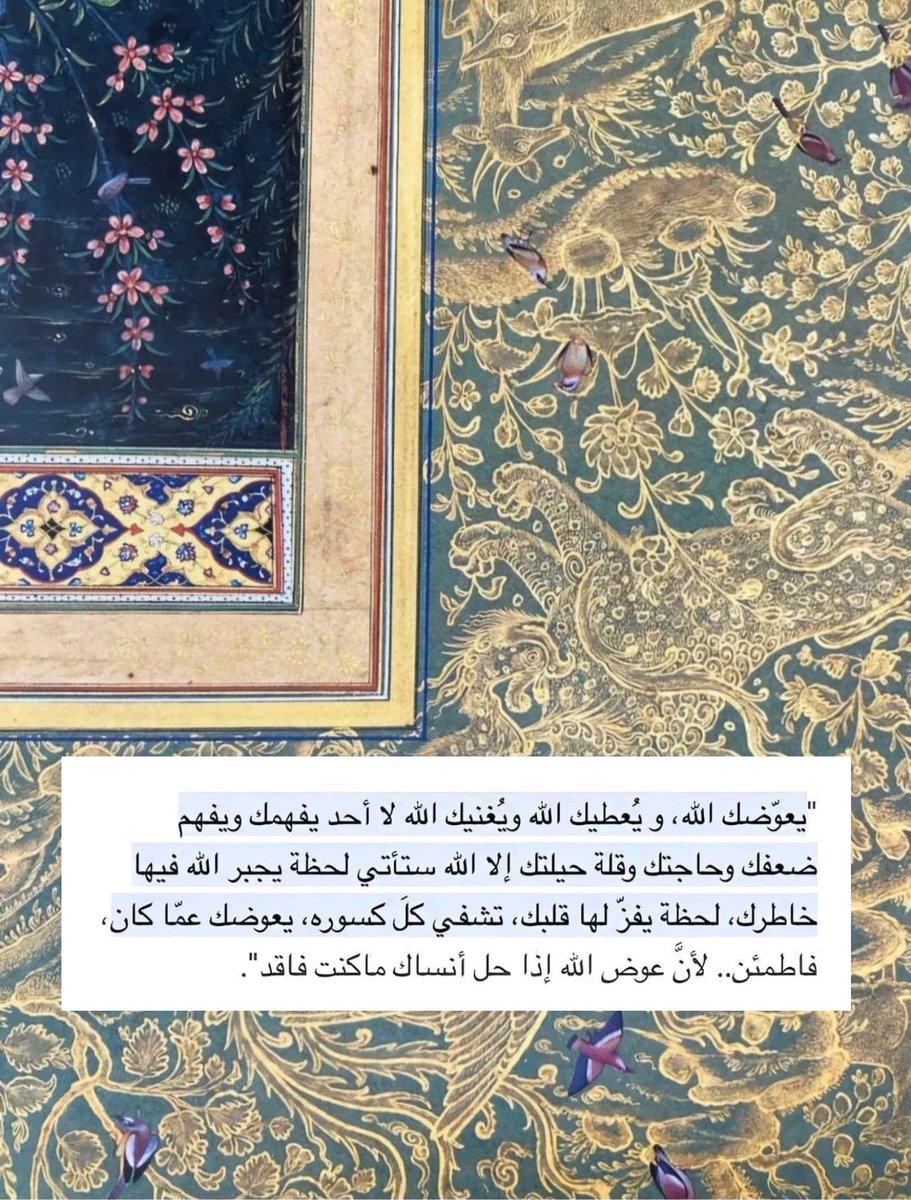 "يعوّضك الله، و يُعطيك الله ويُغنيك الله لا أحد يفهمك ويفهم
ضعفك وحاجتك وقلة حيلتك إلا الله ستأتي لحظة يجبر الله فيها
خاطرك، لحظة يفزّ لها قلبك، تشفي كلَ كسوره، يعوضك عمّا كان،
فاطمئن.. لأنَّ عوض الله إذا حل أنساك ماكنت فاقد".